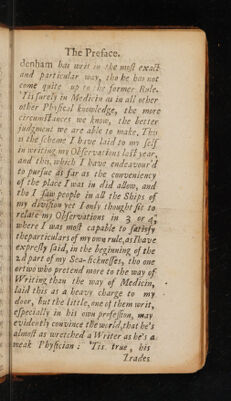 The Preface.
denham has writ in the most exact
and particular way, tho he has not
come quite up to the former Rule.
'Tis surely in Medicin as in all other
other Physical knowledge, the more
circumstances we know, the better
judgment we are able to make. This
is the scheme I have laid to my self
in writing my Observations last year,
and this, which I have endeavour'd
to pursue as far as the conveniency
of the place I was in did allow, and
tho I saw people in all the Ships of
my division yet I only thought fit to
relate my Observations in 3 or 4,
where I was most capable to satisfy
the particulars of my own rule, as I have
expresly said, in the beginning of the
2d part of my Sea-sicknesses, tho one
or two who pretend more to the way of
Writing than the way of Medicin,
laid this as a heavy charge to my
door, but the little, one of them writ,
especially in his own profession, may
evidently convince the world, that he's
almost as wretched a Writer as he's a
weak Physician: 'Tis true, his
Trades